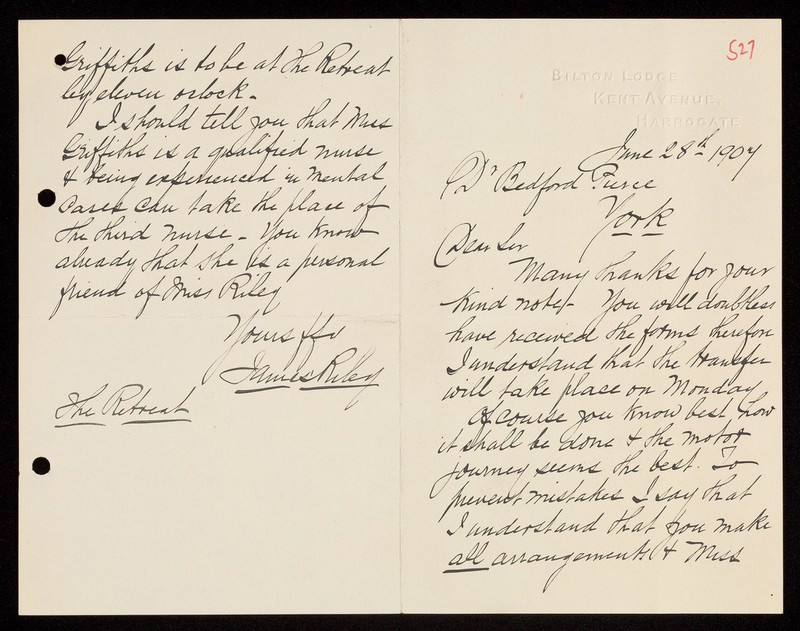 527
BILTON LODGE
KENT AVENUE,
HARROGATE
June 28th 1907
Dr Bedford Pierce
York
Dear Sir
Many thanks for your
kind note. You will doubtless
have received the forms therefore
I understand that the transfer
will take place on Monday
Of course you know best how
it shall be done & the motor
journey seems the best. To
prevent mistakes I say that
I understand that you make
all arrangements & Miss
Griffiths is to be at the Retreat
by eleven oclock.
I should tell you that Miss
Griffiths is a qualified nurse
& being experienced in mental
cases can take the place of
the third nurse - You know
already that she is a personal
friend of Miss Riley
Yours
James Riley
The Retreat